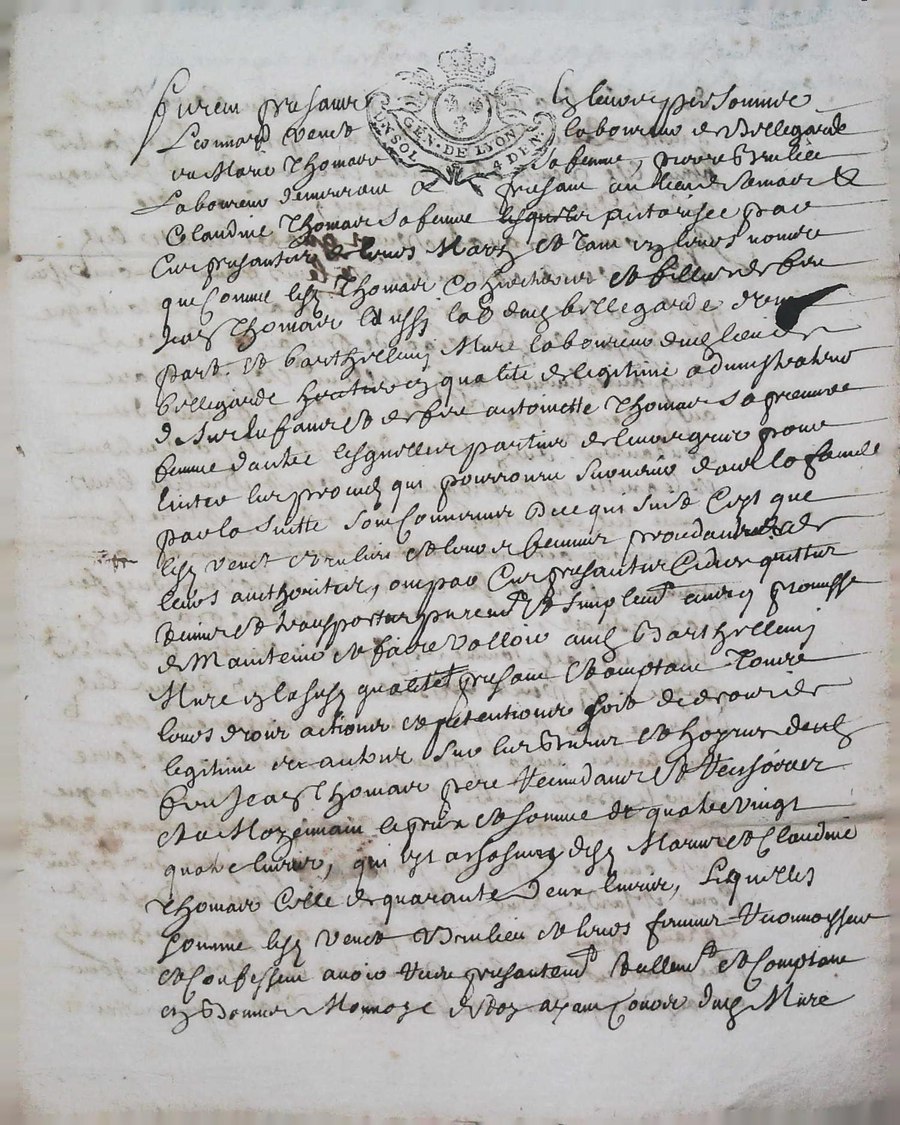 GEN. DE LYON
UN SOL 4 DEN.
furent presans en leurs personnes
Leonard Venet laboureur de Bellegarde
et Marie Thomas sa femme, pierre Brulieu
Laboureur demeurant a present au lieu de
Claudine Thomas sa femme lesquelles autorisee par
presantes de leurs Marys et tant en leurs noms
que comme lesd Thomas et filles de feu
Jean Thomas aussi lab dud bellegarde d'une
part. et barthellemy Mure laboureur dud lieu de
bellegarde en qualité de legitime administrateur
de et de feu antoinette Thomas sa premiere
femme d'autre lesquelles parties de leur gré pour
eviter les proces qui pourroient survenir dans la famille
par la suitte sont convenues de ce qui suit C'est que
lesd Venet Brulieu et leurs femmes procedantes de
leurs authorites, ont par ces presantes cedes quittes
remis et transportes purem.t et simplem.t avec promesse
de Maintenir et faire valloir aud Barthellemy
Mure en lad qualité present et acceptant Toutes
leurs droits actions et pretentions soit de droit de
legitime et autres sur les biens et hoyries dud
feu Jean Thomas pere
et a Moyennant le prix et somme de quatre vingt
quatre livres, qui est a desd Maries et Claudine
Thomas Celle de quarante deux livres, Lesquelles
somme lesd Venet Brulieu et leurs femmes reconnoissent
et Confessent avoir presantem.t reellem.t et Comptant
en Bonne Monnoye de Roy ayant Cours dud Mure